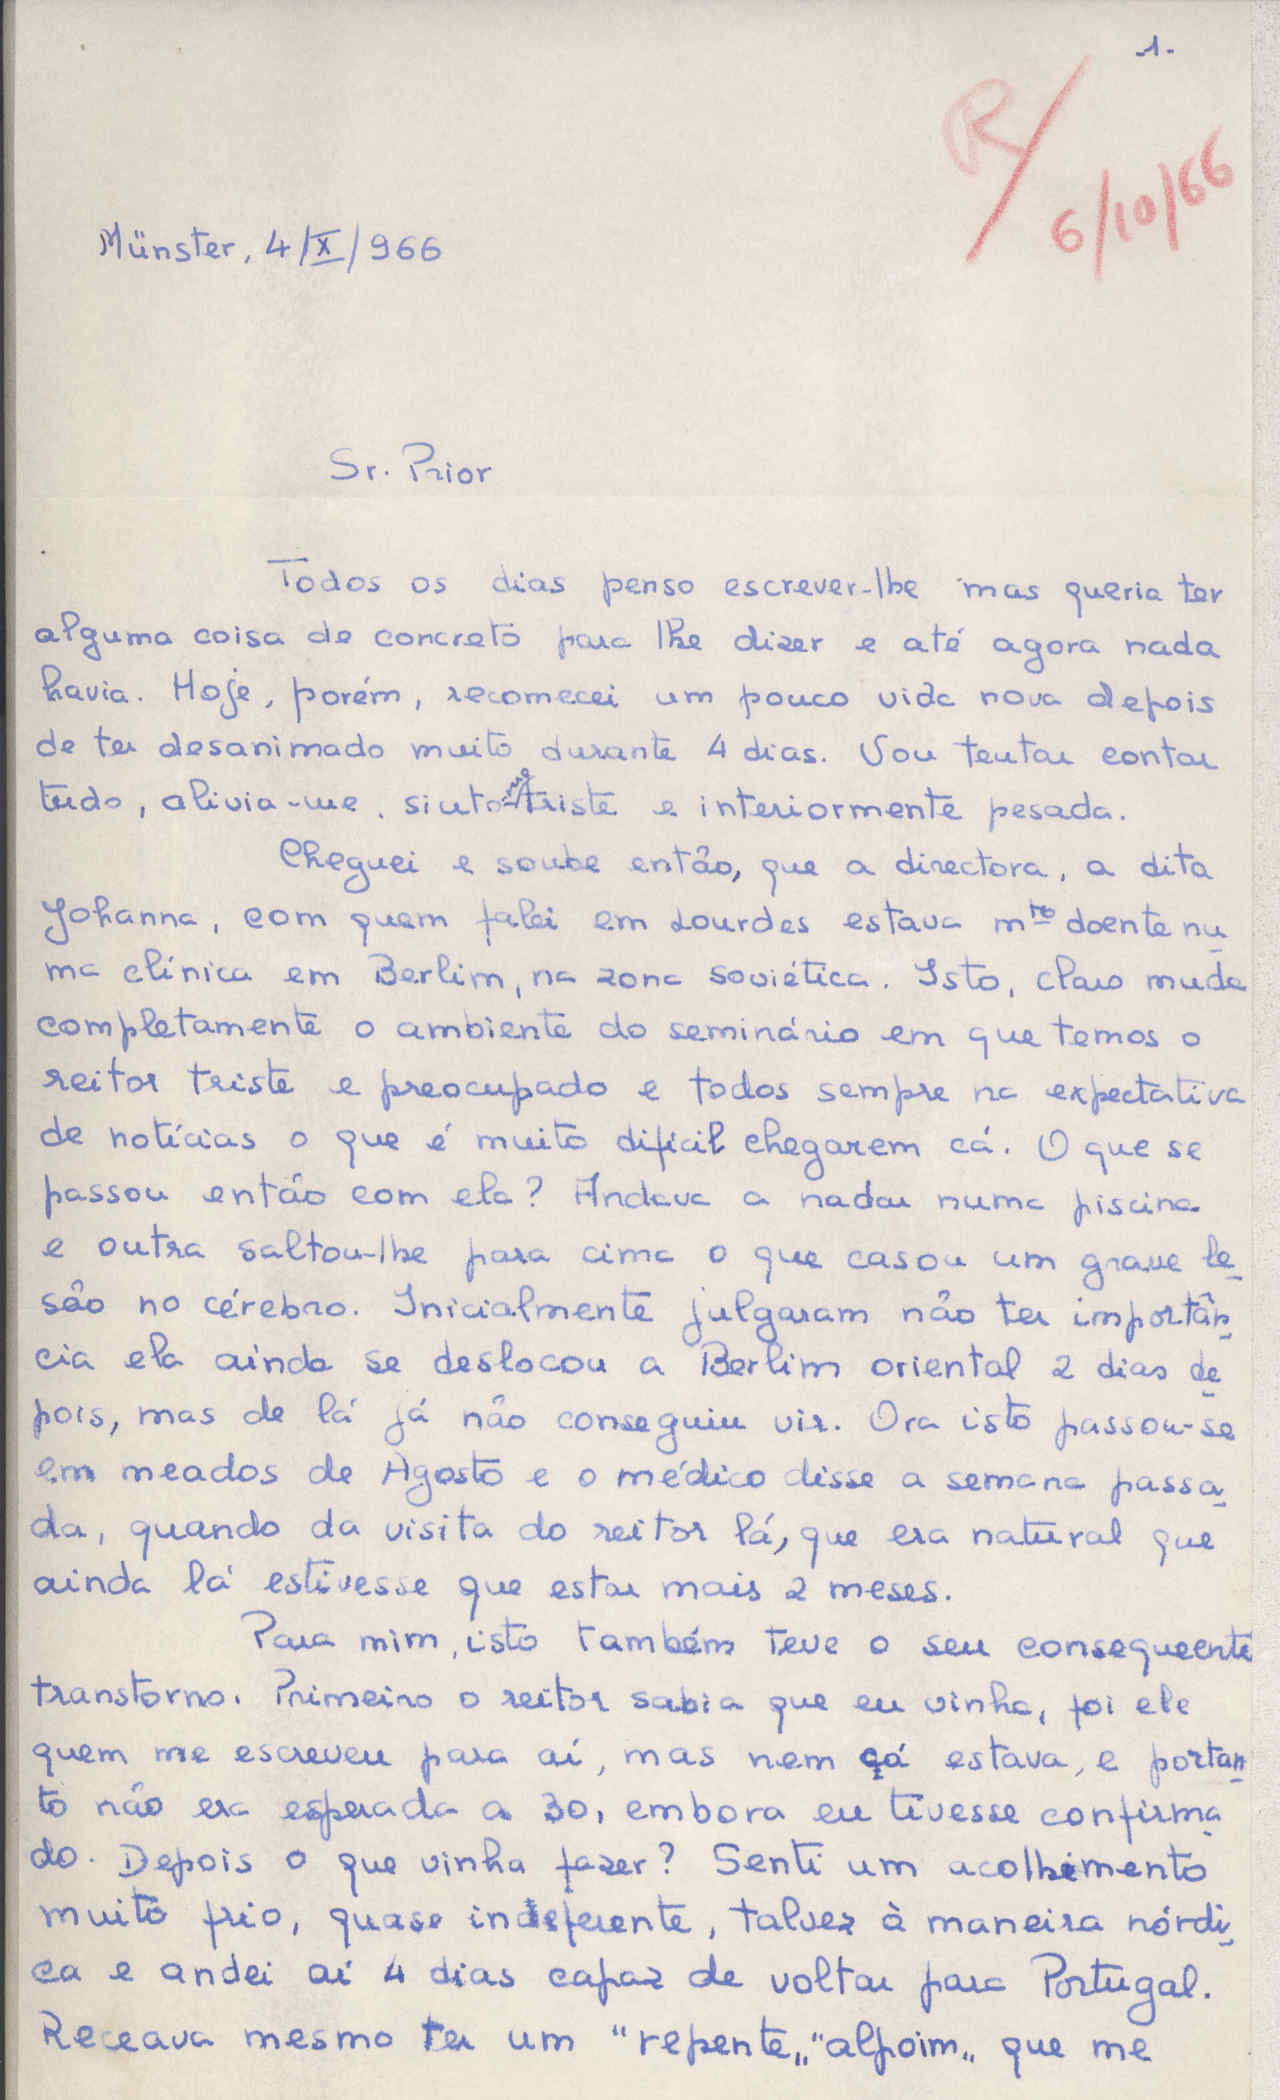 -1-
R/
6/10/66
Münster, 4/X/966
Sr. Prior
Todos os dias penso escrever-lhe mas queria ter
alguma coisa de concreto para lhe dizer e até agora nada
havia. Hoje, porém, recomecei um pouco vida nova depois
de ter desanimado muito durante 4 dias. Vou tentar contar
tudo, alivia-me. sinto-me triste e interiormente pesada.
Cheguei e soube então, que a directora, a dita
Johanna, com quem falei em Lourdes estava mto doente nu-
ma clínica em Berlim, na zona soviética. Isto, claro muda
completamente o ambiente do seminário em que temos o
reitor triste e preocupado e todos sempre na expectativa
de notícias o que é muito difícil chegarem cá. O que se
passou então com ela? Andava a nadar numa piscina
e outra saltou-lhe para cima o que casou um grave le-
são no cérebro. Inicialmente julgaram não ter importân-
cia ela ainda se deslocou a Berlim oriental 2 dias de-
pois, mas de lá já não conseguiu vir. Ora isto passou-se
em meados de Agosto e o médico disse a semana passa-
da, quando da visita do reitor lá, que era natural que
ainda lá estivesse que estar mais 2 meses.
Para mim, isto também teve o seu consequente
transtorno. Primeiro o reitor sabia que eu vinha, foi ele
quem me escreveu para aí, mas nem cá estava, e portan-
to não era esperada a 30, embora eu tivesse confirma-
do. Depois o que vinha fazer? Senti um acolhimento
muito frio, quase indeferente, talvez à maneira nórdi-
ca e andei aí 4 dias capaz de voltar para Portugal.
Receava mesmo ter um "repente„ "alpoim„ que me